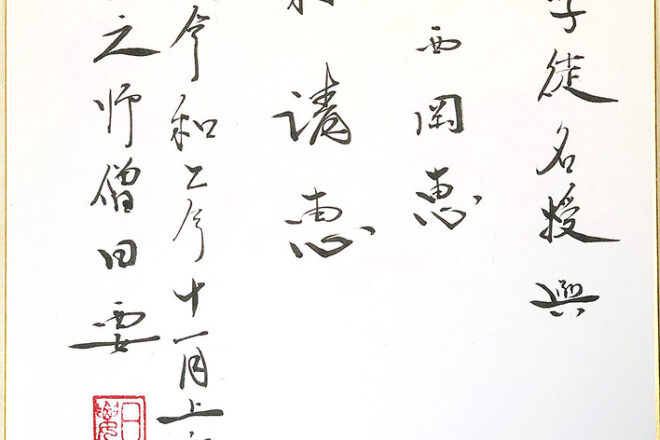 学徒名授與
西岡恵
請恵
令和二年十一月上
之师僧日要